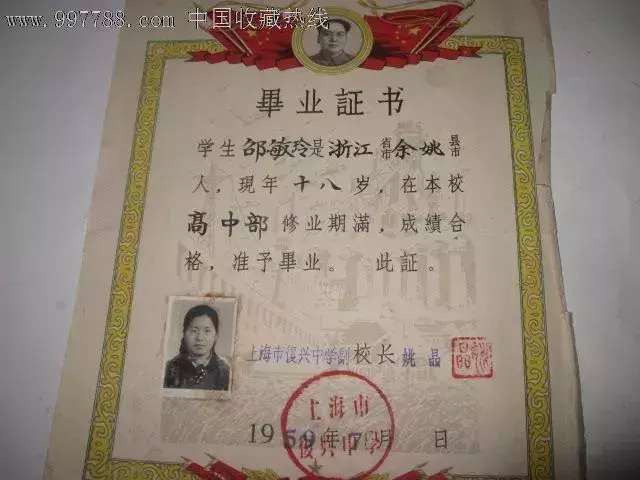 www.997788.com 中国收藏热线
畢业証书
学生邵敏玲是浙江省市余姚县市
人，現年十八岁，在本校
高中部修业期滿，成績合
格，准予畢业。此証。
上海市復兴中学副校长姚晶
1959年7月 日
上海市
復兴中学